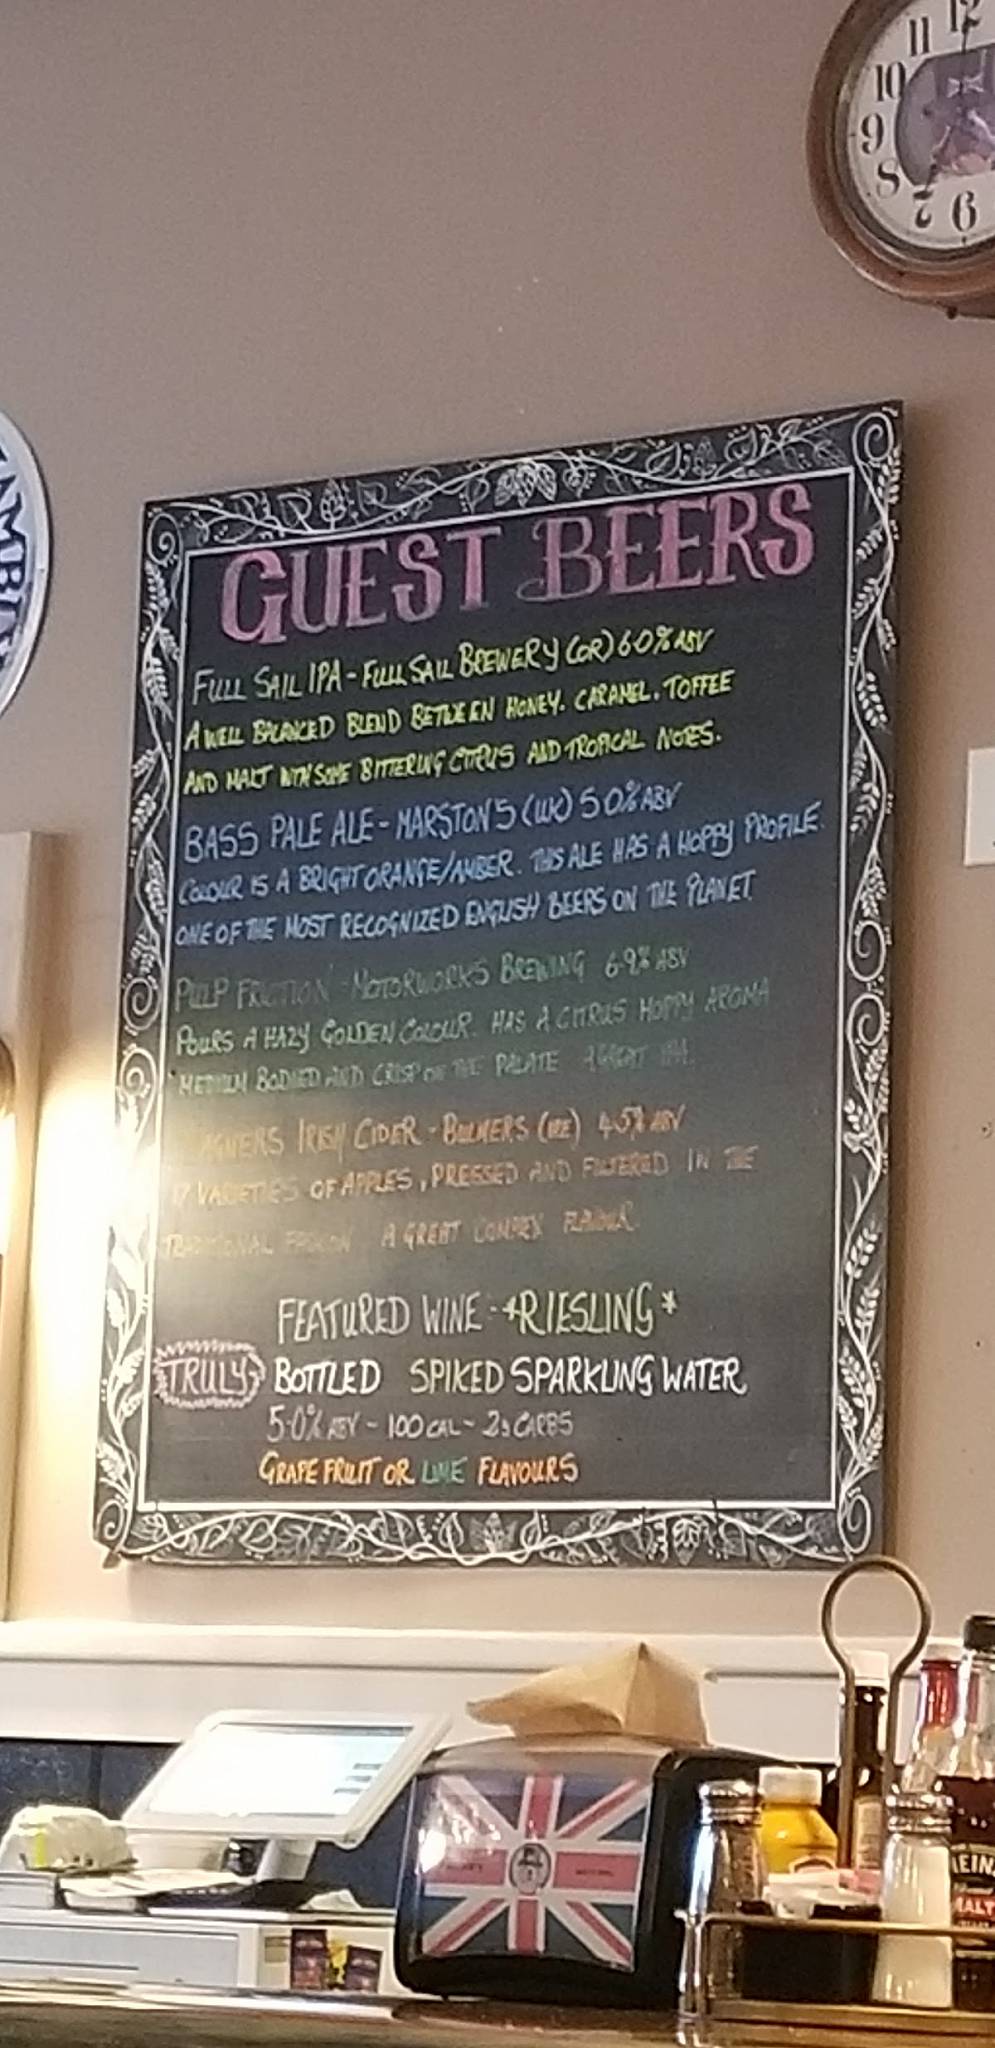 11 12
10
9
8
7 6
GUEST BEERS
FULL SAIL IPA - FULL SAIL BREWERY (OR) 6.0% ABV
A WELL BALANCED BLEND BETWEEN HONEY. CARAMEL. TOFFEE
AND MALT WITH SOME BITTERING CITRUS AND TROPICAL NOTES.
BASS PALE ALE - MARSTON'S (UK) 5.0% ABV
COLOUR IS A BRIGHT ORANGE/AMBER. THIS ALE HAS A HOPPY PROFILE.
ONE OF THE MOST RECOGNIZED ENGLISH BEERS ON THE PLANET.
PULP FRICTION - MOTORWORKS BREWING 6.9% ABV
POURS A HAZY GOLDEN COLOUR. HAS A CITRUS HOPPY AROMA
MEDIUM BODIED AND CRISP ON THE PALATE A GREAT IPA.
MAGNERS IRISH CIDER - BULMERS (IRE) 4.5% ABV
17 VARIETIES OF APPLES, PRESSED AND FILTERED IN THE
TRADITIONAL FASHION A GREAT COMPLEX FLAVOUR.
FEATURED WINE - *RIESLING*
TRULY BOTTLED SPIKED SPARKLING WATER
5.0% ABV - 100 CAL - 2g CARBS
GRAPEFRUIT OR LIME FLAVOURS
HEIN
MALT